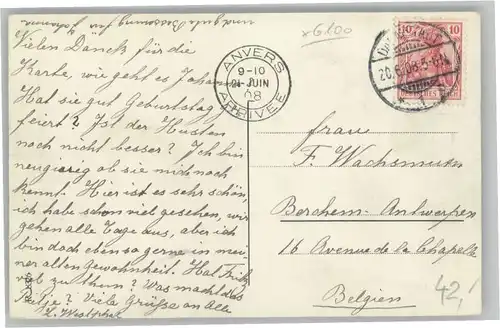 und gute Besserung für Johanna
Vielen Dänck für die
Karte, wie geht es Johan
Hat sie gut Geburtstag ge
feiert? Ist der Husten
noch nicht besser? Ich bin
neugierig ob sie mich noch
kennt. Hier ist es sehr schön,
ich habe schon viel gesehen, wir
gehen alle Tage aus, aber ich
bin doch ebenso gerne in mei
ner alten Gewohnheit. Hat Frik
viel zu thun? Was macht das
Betje? Viele Grüsse an Alle
L. Westphal
x6100
ANVERS
9-10
21 JUIN
08
ARRIVEE
10
20.6.08.5-6N
Frau
F. Wachsmuth
Berchem-Antwerpen
16 Avenue de la Chapelle
Belgien
42,